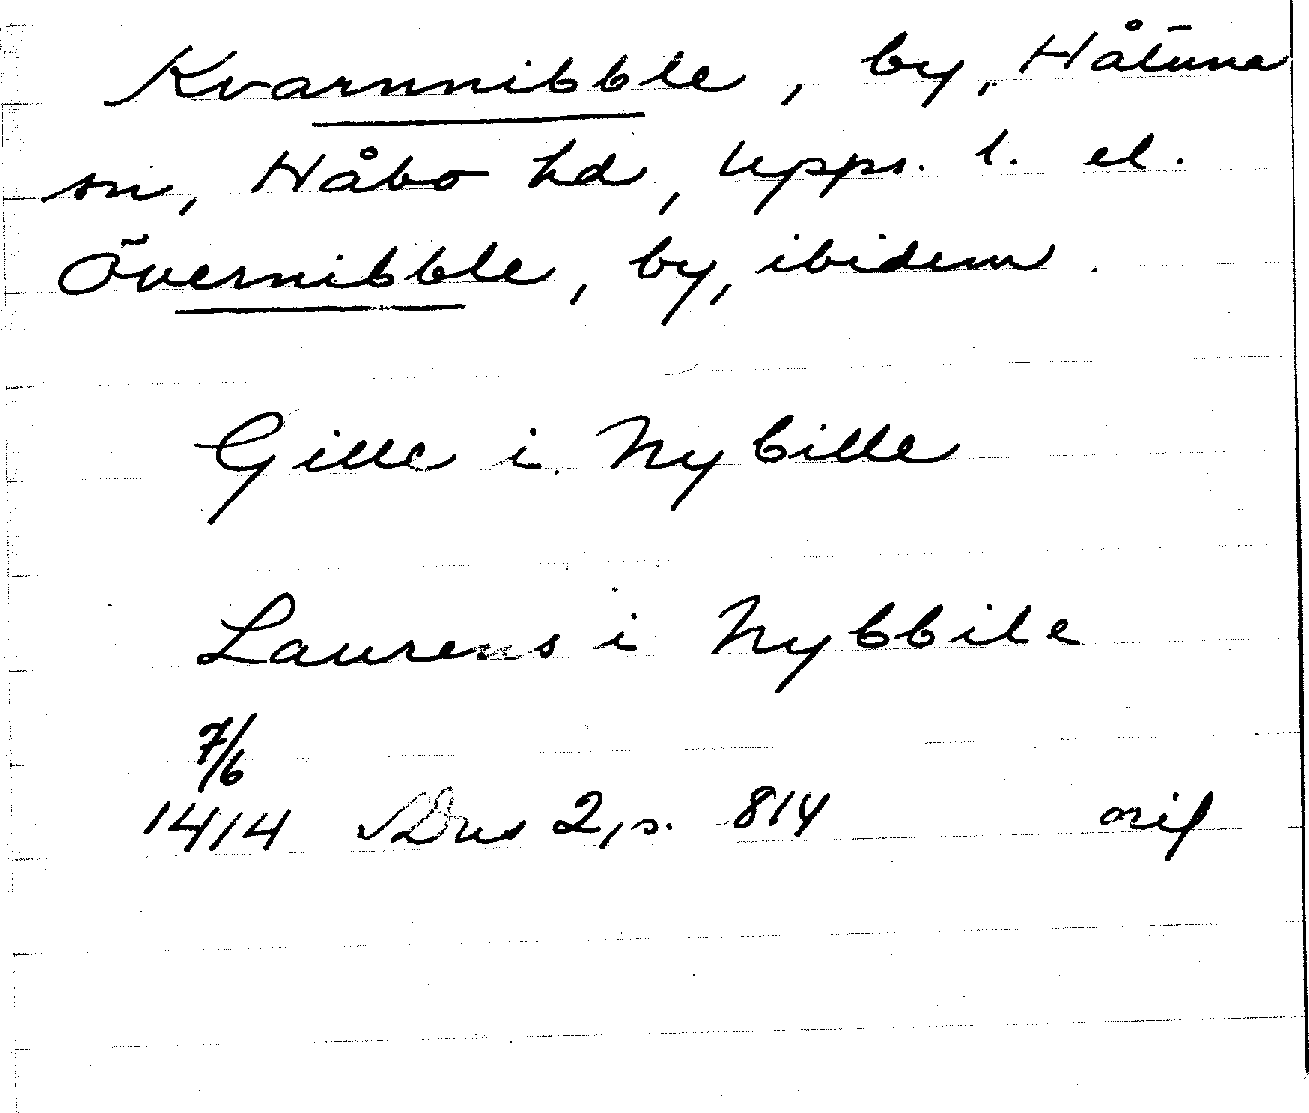 Kvarnnibble, by, Håtuna
sn, Håbo hd, Upps. l. el.
Övernibble, by, ibidem.
Gille i Nybille
Laurens i Nybbile
7/6
1414 SDns 2, s. 814 orig